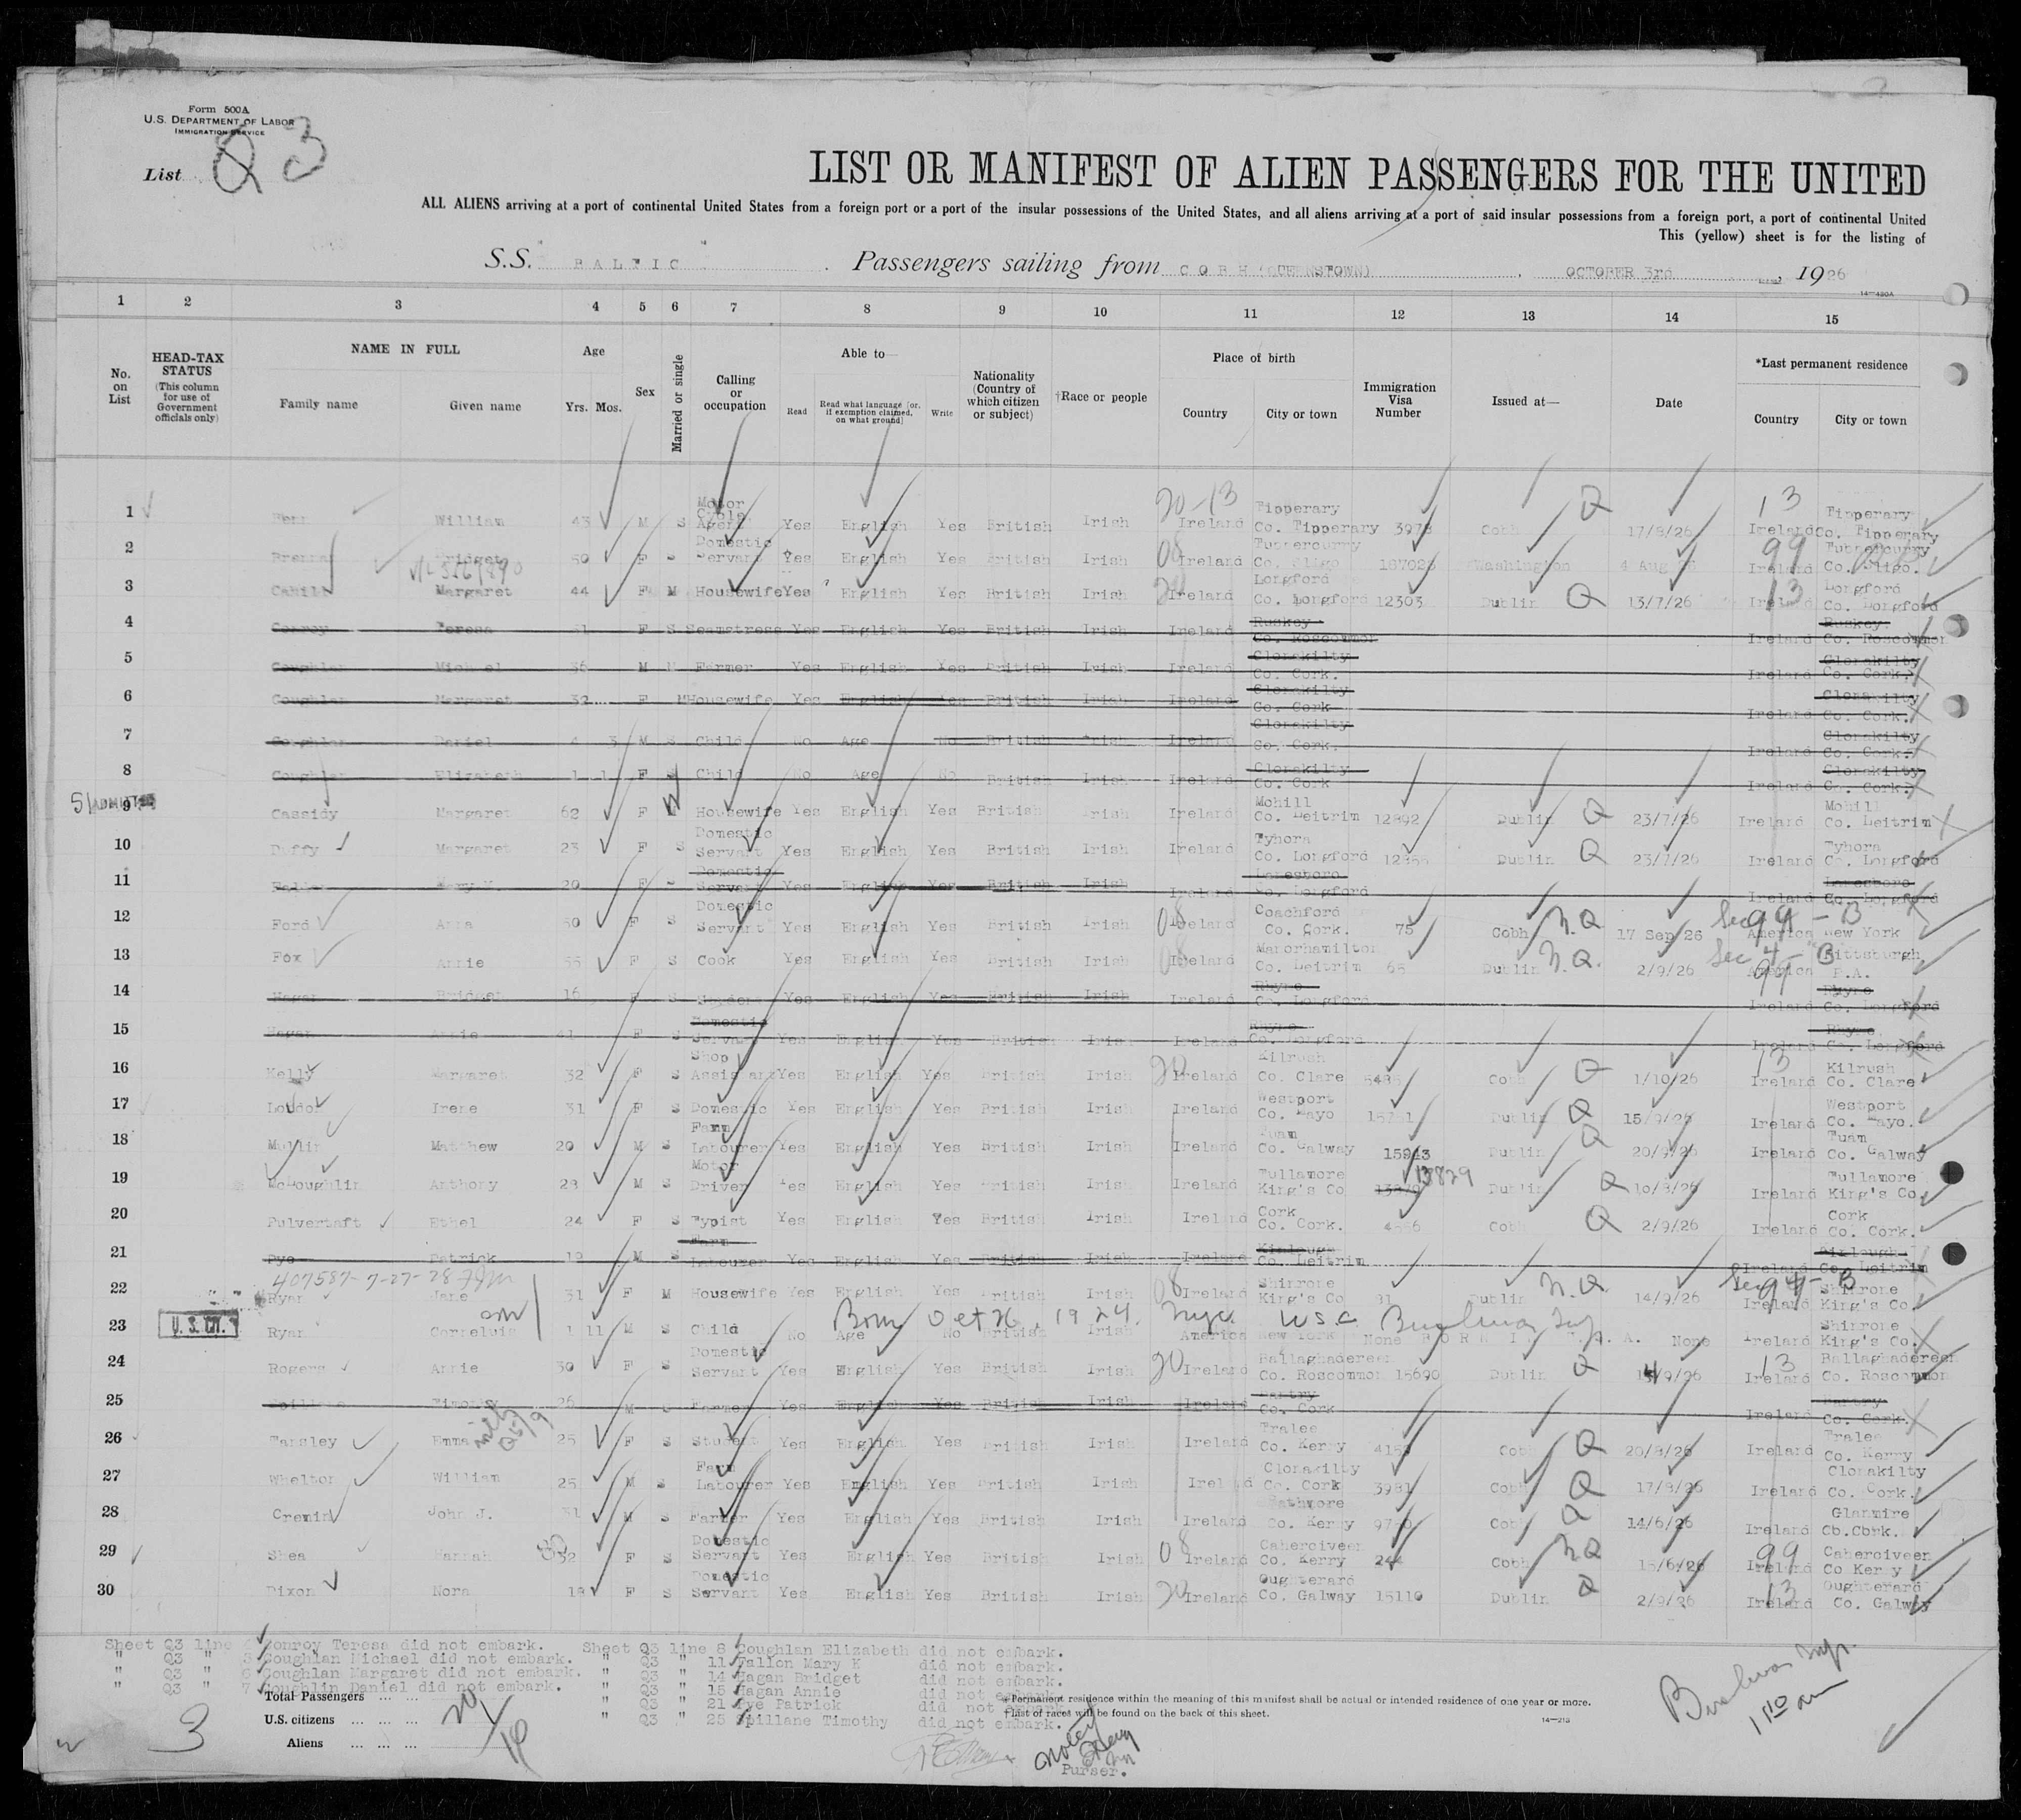 Form 500A
U.S. DEPARTMENT OF LABOR
IMMIGRATION SERVICE
List Q 3
LIST OR MANIFEST OF ALIEN PASSENGERS FOR THE UNITED
ALL ALIENS arriving at a port of continental United States from a foreign port or a port of the insular possessions of the United States, and all aliens arriving at a port of said insular possessions from a foreign port, a port of continental United
This (yellow) sheet is for the listing of
S.S. BALTIC Passengers sailing from COBH (QUEENSTOWN), OCTOBER 3rd, 1926
14-490A
1 2 3 4 5 6 7 8 9 10 11 12 13 14 15
No. on List
HEAD-TAX STATUS (This column for use of Government officials only)
NAME IN FULL Family name Given name
Age Yrs. Mos.
Sex
Married or single
Calling or occupation
Able to— Read Read what language [or, if exemption claimed, on what ground] Write
Nationality (Country of which citizen or subject)
†Race or people
Place of birth Country City or town
Immigration Visa Number
Issued at—
Date
*Last permanent residence Country City or town
1 William 43 M S Motor Cycle Agent Yes English Yes British Irish 20-13 Ireland Tipperary Co. Tipperary 3978 Cobh Q 17/8/26 13 Ireland Tipperary Co. Tipperary
2 Bridget 50 F S Domestic Servant Yes English Yes British Irish 08 Ireland Tubbercurry Co. Sligo Washington 4 Aug 99 Ireland Tubbercurry Co. Sligo.
3 Cahill Margaret 44 F M Housewife Yes English Yes British Irish Ireland Longford Co. Longford 12303 Dublin Q 13/7/26 13 Ireland Longford Co. Longford
4 Conroy Teresa 31 F S Seamstress Yes English Yes British Irish Ireland Ruskey Co. Roscommon Ireland Ruskey Co. Roscommon
5 Coughlan Michael 36 M M Farmer Yes English Yes British Irish Ireland Clonakilty Co. Cork. Ireland Clonakilty Co. Cork.
6 Coughlan Margaret 32 F M Housewife Yes English Yes British Irish Ireland Clonakilty Co. Cork Ireland Clonakilty Co. Cork.
7 Coughlan Daniel 4 3 M S Child No Age No British Irish Ireland Clonakilty Co. Cork. Ireland Clonakilty Co. Cork.
8 Coughlan Elizabeth 1 1 F S Child No Age No British Irish Ireland Clonakilty Co. Cork Ireland Clonakilty Co. Cork.
51 ADMITTED
9 Cassidy Margaret 62 F W Housewife Yes English Yes British Irish Ireland Mohill Co. Leitrim 12892 Dublin Q 23/7/26 Ireland Mohill Co. Leitrim
10 Duffy Margaret 23 F S Domestic Servant Yes English Yes British Irish Ireland Co. Longford Dublin Q 23/7/26 Ireland Co. Longford
11 Mary 20 F S Domestic Servant Yes English Yes British Irish Ireland Lanesboro Co. Longford Ireland Lanesboro Co. Longford
12 Ford Anna 50 F S Domestic Servant Yes English Yes British Irish 08 Ireland Coachford Co. Cork. 75 Cobh N.Q 17 Sep 26 Sec 4 - B 99 America New York
13 Fox Annie 55 F S Cook Yes English Yes British Irish 08 Ireland Manorhamilton Co. Leitrim 65 Dublin N.Q. 2/9/26 Sec 4 - B 99 America Pittsburgh P.A.
14 Hagan Bridget 16 F S Student Yes English Yes British Irish Ireland Rhyne Co. Longford Ireland Rhyne Co. Longford
15 Hagan Annie 41 F S Domestic Servant Yes English Yes British Irish Ireland Rhyne Co. Longford Ireland Rhyne Co. Longford
16 Kelly Margaret 32 F S Shop Assistant Yes English Yes British Irish 20 Ireland Kilrush Co. Clare Cobh Q 1/10/26 13 Ireland Kilrush Co. Clare
17 Irene 31 F S Domestic Yes English Yes British Irish Ireland Westport Co. Mayo Dublin Q 15/9/26 Ireland Westport Co. Mayo.
18 Mullin Matthew 20 M S Farm Labourer Yes English Yes British Irish Ireland Tuam Co. Galway 15943 Dublin Q 20/9/26 Ireland Tuam Co. Galway
19 McLoughlin Anthony 28 M S Motor Driver Yes English Yes British Irish Ireland Tullamore King's Co 13829 Dublin Q 10/8/26 Ireland Tullamore King's Co.
20 Pulvertaft Ethel 24 F S Typist Yes English Yes British Irish Ireland Cork Co. Cork. Cobh Q 2/9/26 Ireland Cork Co. Cork.
21 Pye Patrick 19 M S Farm Labourer Yes English Yes British Irish Ireland Kinlough Co. Leitrim Ireland Kinlough Co. Leitrim
407587-7-27-28
22 Ryan Jane 31 F M Housewife Yes English Yes British Irish 08 Ireland Shinrone King's Co. 81 Dublin N.Q 14/9/26 Sec 4 - B 99 Ireland Shinrone King's Co.
Born Oct 26, 1924, NYC USC
U.S. CIT.
23 Ryan Cornelius 1 11 M S Child No Age No British Irish America New York None BORN IN U.S.A. None Ireland Shinrone King's Co.
24 Rogers Annie 30 F S Domestic Servant Yes English Yes British Irish 20 Ireland Ballaghadereen Co. Roscommon 15690 Dublin Q 14/9/26 13 Ireland Ballaghadereen Co. Roscommon
25 Spillane Timothy 26 M S Farmer Yes English Yes British Irish Ireland Bantry Co. Cork Ireland Bantry Co. Cork.
26 Tansley Emma 25 F S Student Yes English Yes British Irish Ireland Tralee Co. Kerry Cobh Q 20/8/26 Ireland Tralee Co. Kerry
27 Whelton William 25 M S Farm Labourer Yes English Yes British Irish Ireland Clonakilty Co. Cork 3981 Cobh Q 17/8/26 Ireland Clonakilty Co. Cork.
28 Cremin John J. 31 M S Farmer Yes English Yes British Irish Ireland Rathmore Co. Kerry Cobh Q 14/6/26 Ireland Glanmire Co.Cork.
29 Shea Hannah 32 F S Domestic Servant Yes English Yes British Irish 08 Ireland Caherciveen Co. Kerry 244 Cobh NQ 15/6/26 99 Ireland Caherciveen Co Kerry
30 Dixon Nora 19 F S Domestic Servant Yes English Yes British Irish 20 Ireland Oughterard Co. Galway 15110 Dublin Q 2/9/26 13 Ireland Oughterard Co. Galway
Sheet Q3 line 4 Conroy Teresa did not embark. Sheet Q3 line 8 Coughlan Elizabeth did not embark.
" Q3 " 5 Coughlan Michael did not embark. " Q3 " 11 Fallon Mary K did not embark.
" Q3 " 6 Coughlan Margaret did not embark. " Q3 " 14 Hagan Bridget did not embark.
" Q3 " 7 Coughlin Daniel did not embark. " Q3 " 15 Hagan Annie did not embark.
" Q3 " 21 Pye Patrick did not embark.
" Q3 " 25 Spillane Timothy did not embark.
Total Passengers ... ... ... 20
U.S. citizens ... ... ... 1
Aliens ... ... ... 19
*Permanent residence within the meaning of this manifest shall be actual or intended residence of one year or more.
†List of races will be found on the back of this sheet.
14-213
3
Purser.